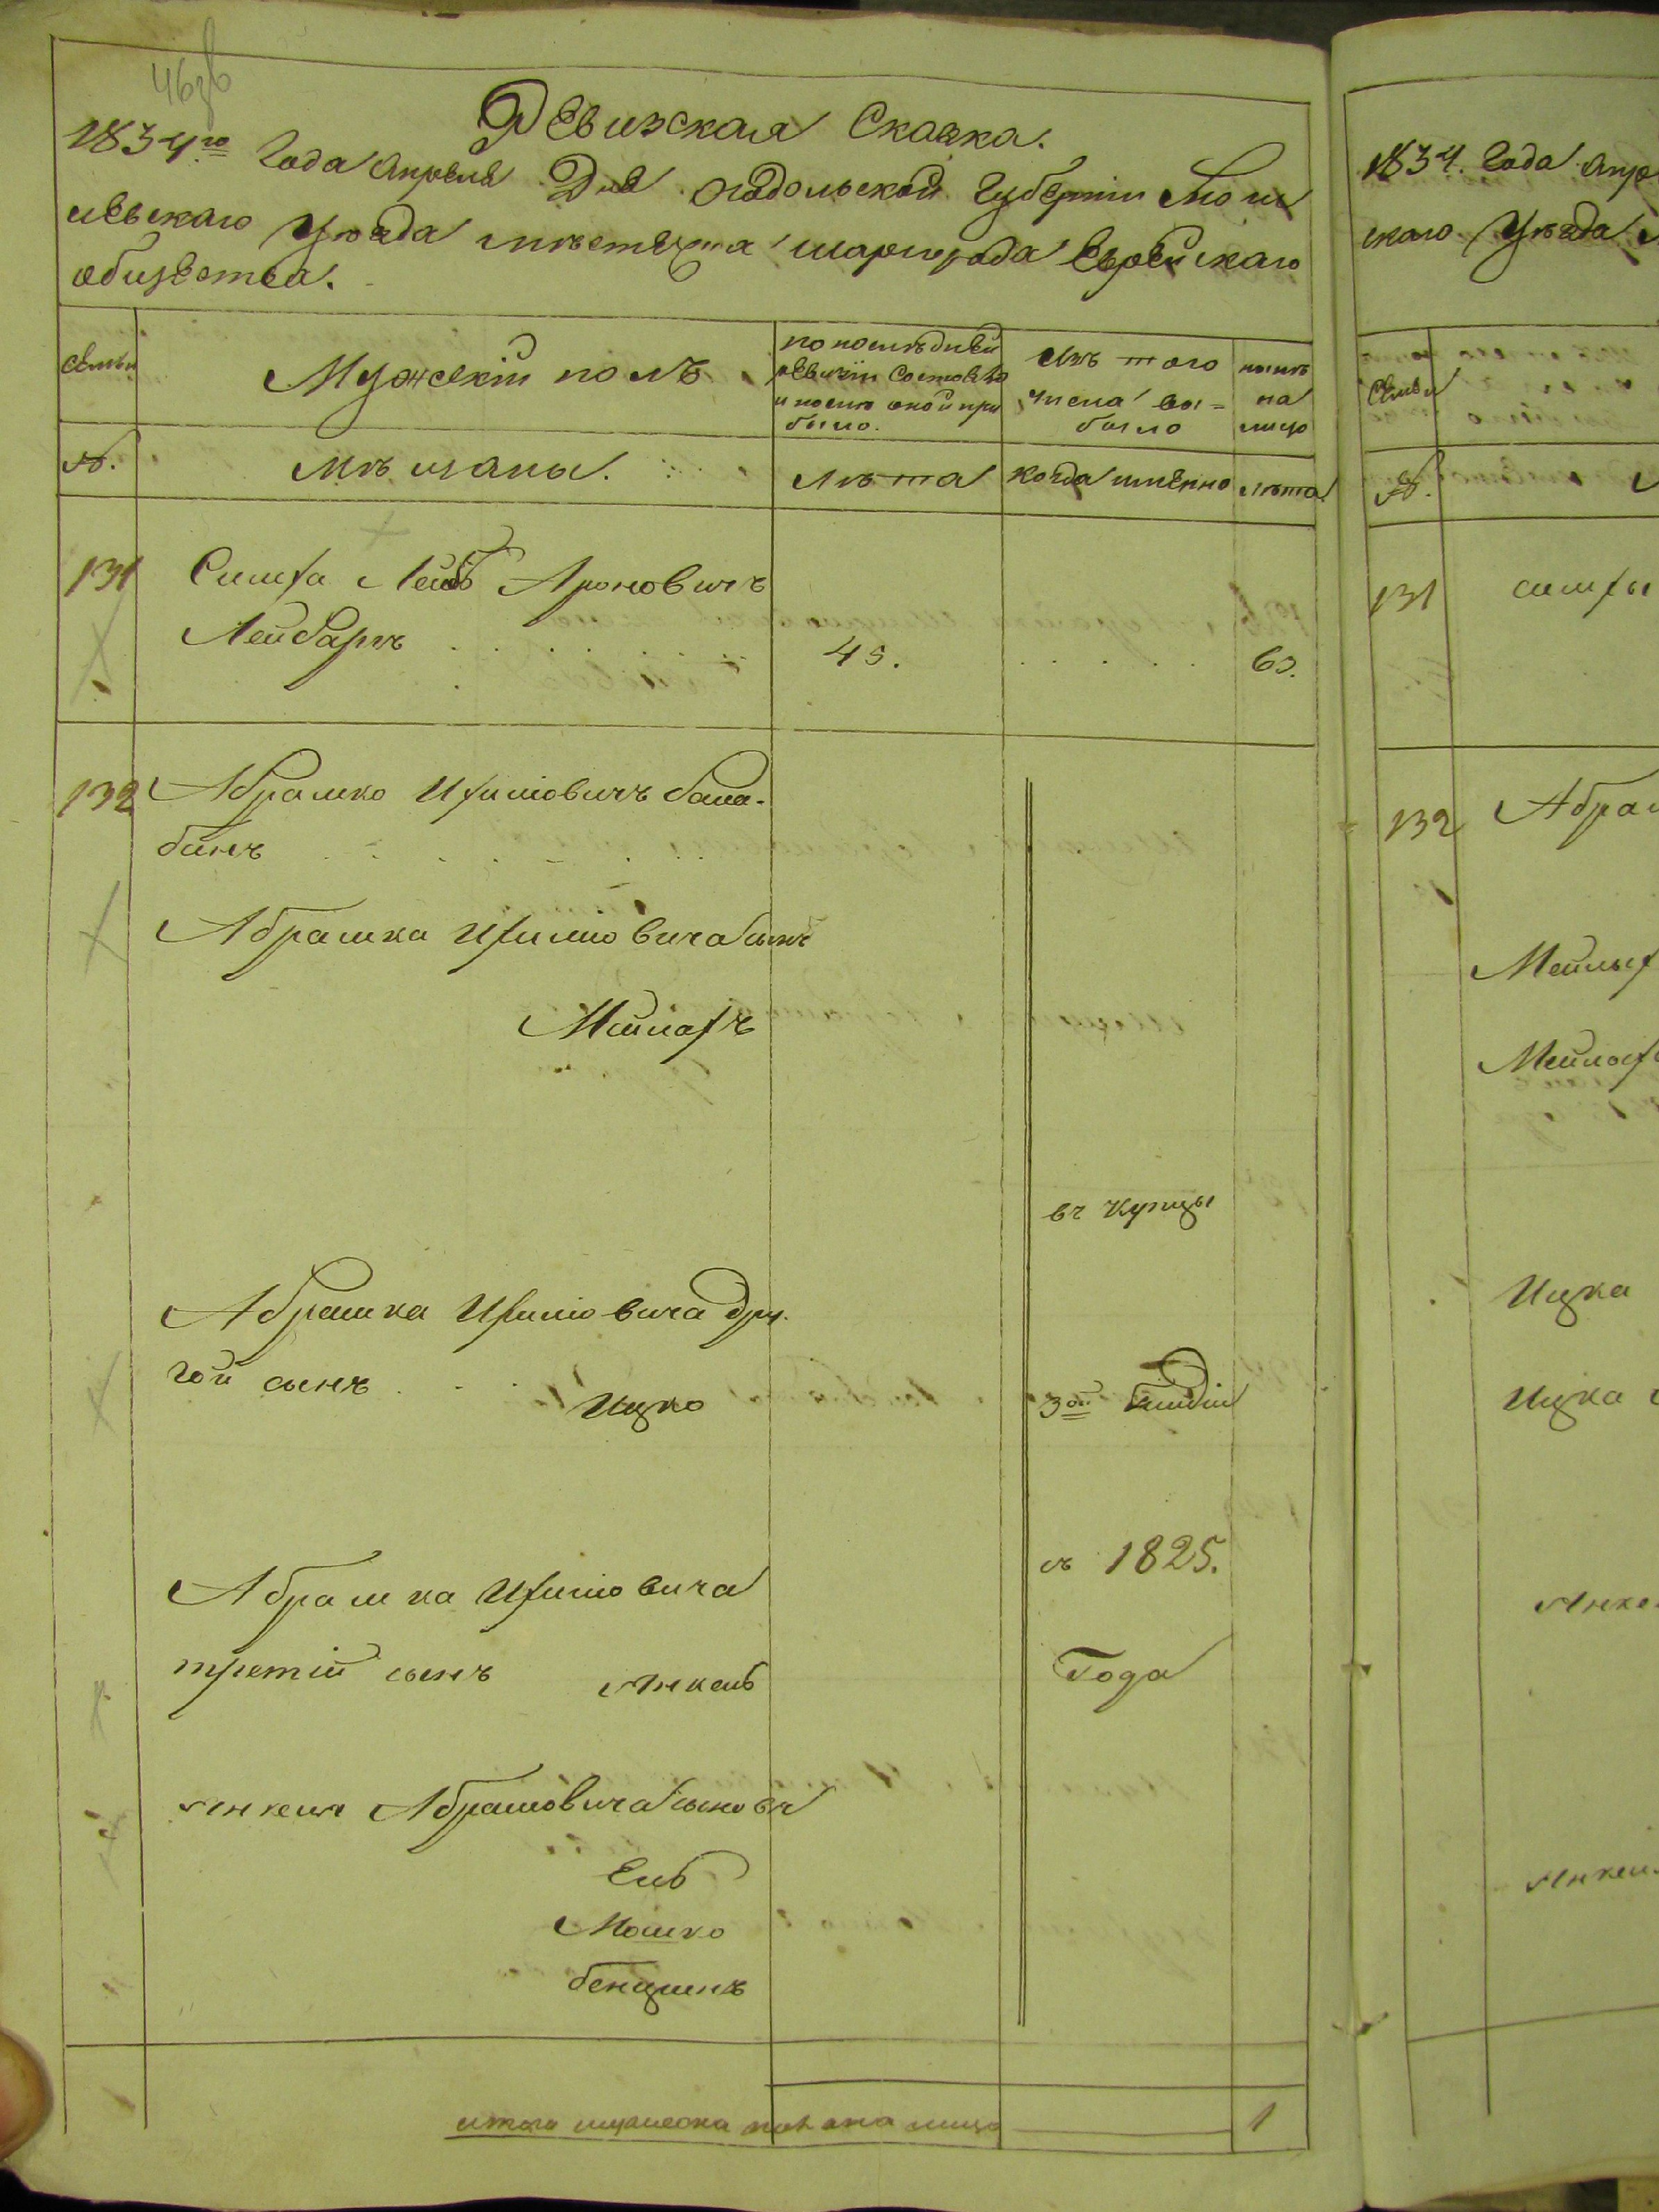 Ревизская Сказка.
1834го Года Апреля Дня Подольской Губерніи Моги
левскаго Уѣзда мѣстечка Шаргорода Еврейскаго
общества.
Семьи
Мужескій полъ
по послѣдней
ревизіи состояло
и после оной при
было.
Изъ того
числа вы=
было
нынѣ
на
лицо
№.
Мѣщаны.
Лѣта
когда именно
лѣта
131
Симха Лейбъ Ароновичъ
Лейдарт
45.
60.
132
Абрамко Ихиловичъ бала-
банъ
Абрамка Ихиловича сынъ
Мейлахъ
въ купцы
Абрамка Ихиловича дру-
гой сынъ
Ицко
3ой Гилдіи
съ 1825.
Абрамка Ихиловича
третій сынъ Янкель
Года
Янкеля Абрамовича сыновя
Ель
Мошко
бенционъ
итого мужеска пола на лицо
1
1834. Года Апре
скаго Уѣзда
Семьи
№.
131
симхи
132
Абрам
Мейлых
Мейлых
Ицка
Ицка
Янке
Янкел